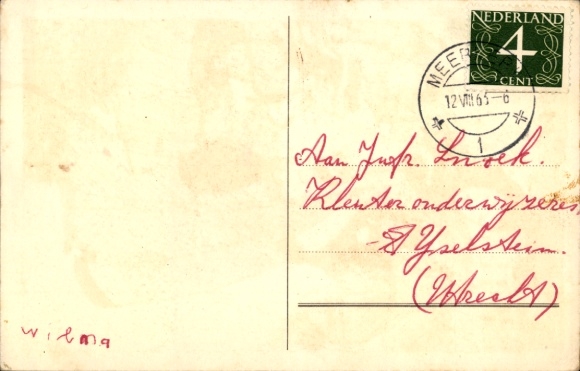 NEDERLAND
4
CENT
12 VIII 65-6
1
Aan Jufr. Snoek.
Kleuteronderwijzeres
IJselstein.
(Utrecht)
wilma